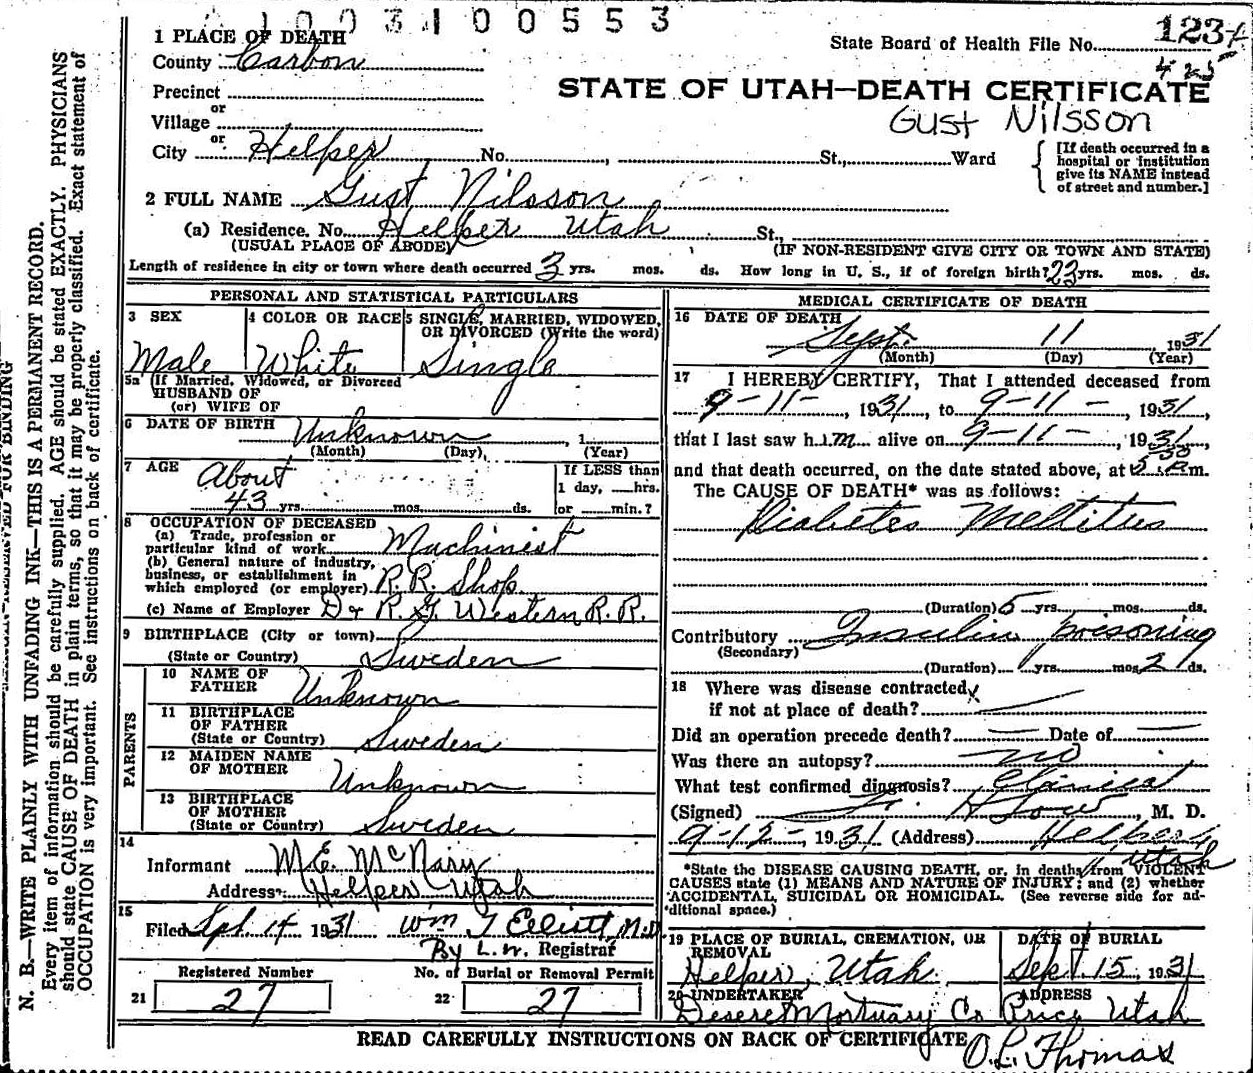 1003100553
1 PLACE OF DEATH
State Board of Health File No. 1234
County Carbon
Precinct
STATE OF UTAH—DEATH CERTIFICATE
or
Village
Gust Nilsson
or
City Helper No. , St., Ward
[If death occurred in a
hospital or institution
give its NAME instead
of street and number.]
2 FULL NAME Gust Nilsson
(a) Residence. No. Helper Utah St.,
(USUAL PLACE OF ABODE) (IF NON-RESIDENT GIVE CITY OR TOWN AND STATE)
Length of residence in city or town where death occurred 3 yrs. mos. ds. How long in U. S., if of foreign birth? 23 yrs. mos. ds.
PERSONAL AND STATISTICAL PARTICULARS
3 SEX 4 COLOR OR RACE 5 SINGLE, MARRIED, WIDOWED,
OR DIVORCED (Write the word)
Male White Single
5a (If Married, Widowed, or Divorced
HUSBAND OF
(or) WIFE OF
6 DATE OF BIRTH Unknown , 1
(Month) (Day), (Year)
7 AGE About
43 yrs. mos. ds.
If LESS than
1 day, hrs.
or min.?
8 OCCUPATION OF DECEASED
(a) Trade, profession or
particular kind of work Machinist
(b) General nature of industry,
business, or establishment in
which employed (or employer) R. R. Shop
(c) Name of Employer D & R. G. Western R. R.
9 BIRTHPLACE (City or town)
(State or Country) Sweden
PARENTS
10 NAME OF
FATHER Unknown
11 BIRTHPLACE
OF FATHER
(State or Country) Sweden
12 MAIDEN NAME
OF MOTHER Unknown
13 BIRTHPLACE
OF MOTHER
(State or Country) Sweden
14
Informant M. E. McNary
Address Helper Utah
15
Filed Sept. 14 1931 Wm T Elliott M.D
By L. W. Registrar
Registered Number No. of Burial or Removal Permit
21 27 22 27
MEDICAL CERTIFICATE OF DEATH
16 DATE OF DEATH
Sept. 11 1931
(Month) (Day) (Year)
17 I HEREBY CERTIFY, That I attended deceased from
9-11-, 1931, to 9-11-, 1931,
that I last saw him alive on 9-11-, 1931,
and that death occurred, on the date stated above, at 5 m.
The CAUSE OF DEATH* was as follows:
Diabetes Mellitus
(Duration) 5 yrs. mos. ds.
Contributory Insulin poisoning
(Secondary)
(Duration) yrs. mos. 2 ds.
18 Where was disease contracted
if not at place of death?
Did an operation precede death? — Date of —
Was there an autopsy? no
What test confirmed diagnosis? Clinical
(Signed) M. D.
9-12-, 1931 (Address) Helper,
Utah
*State the DISEASE CAUSING DEATH, or, in deaths from VIOLENT
CAUSES state (1) MEANS AND NATURE OF INJURY; and (2) whether
ACCIDENTAL, SUICIDAL OR HOMICIDAL. (See reverse side for ad-
ditional space.)
19 PLACE OF BURIAL, CREMATION, OR
REMOVAL
Helper, Utah
DATE OF BURIAL
Sept 15, 1931
20 UNDERTAKER ADDRESS
Deseret Mortuary Co Price Utah
READ CAREFULLY INSTRUCTIONS ON BACK OF CERTIFICATE
O. L. Thomas
MARGIN RESERVED FOR BINDING
N. B.—WRITE PLAINLY WITH UNFADING INK—THIS IS A PERMANENT RECORD.
Every item of information should be carefully supplied. AGE should be stated EXACTLY. PHYSICIANS
should state CAUSE OF DEATH in plain terms, so that it may be properly classified. Exact statement of
OCCUPATION is very important. See instructions on back of certificate.